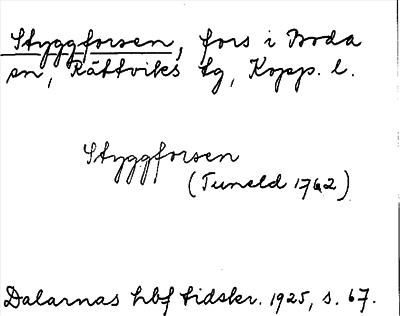 Styggforsen, fors i Boda
sn, Rättviks tg, Kopp. l.
Styggforsen
(Tuneld 1762)
Dalarnas hbf tidskr. 1925, s. 67.